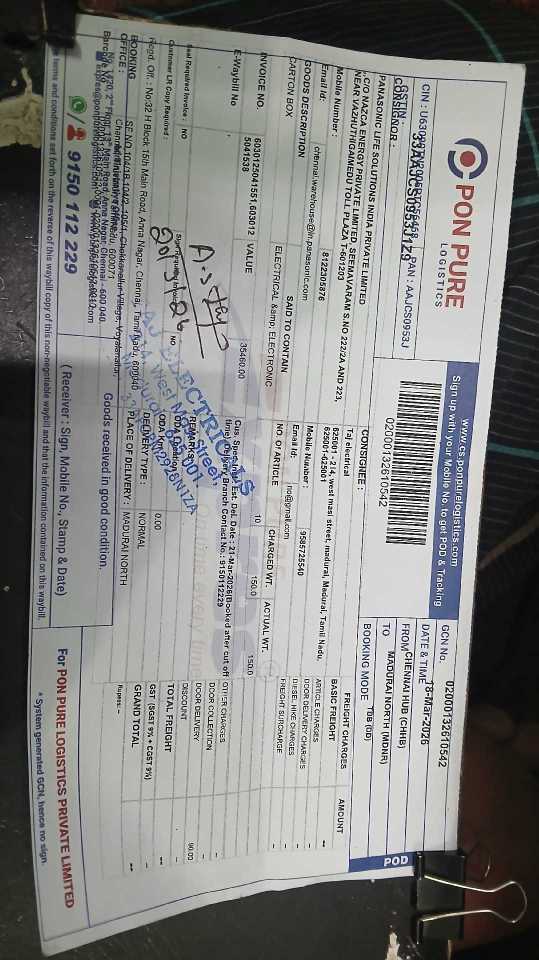 PON PURE
LOGISTICS
www.cs.ponpurelogistics.com
Sign up with your Mobile No. to get POD & Tracking
02000132610542
GCN No. 02000132610542
DATE & TIME 18-Mar-2026
FROM CHENNAI HUB (CHHB)
TO MADURAI NORTH (MDNR)
BOOKING MODE TBB (BID)
POD
PAN : AAJCS0953J
GSTIN : 33AAJCS0953J1Z9
CONSIGNOR :
PANASONIC LIFE SOLUTIONS INDIA PRIVATE LIMITED
C/O NAZCA ENERGY PRIVATE LIMITED, SEEMAVARAM S.NO 222/2A AND 223,
NEAR VAZHUTHIGAIMEDU TOLL PLAZA T-601203
Mobile Number : 8122305876
Email Id: chennai.warehouse@in-panasonic.com
CONSIGNEE :
Taj electrical
625001 - 214, west masi street, madurai, Madurai, Tamil Nadu,
625001-625001
Mobile Number : 9585725540
Email Id: no@gmail.com
GOODS DESCRIPTION SAID TO CONTAIN NO. OF ARTICLE CHARGED WT. ACTUAL WT.
CARTON BOX ELECTRICAL &amp; ELECTRONIC 10 150.0 150.0
INVOICE NO. 6030125041551,603012
5041538
VALUE 35460.00
E-Waybill No
Cus. Specified / Est. Del. Date : 21-Mar-2026(Booked after cut off
time) / Delivery Branch Contact No.: 9150112229
Seal Required Invoice : NO
Customer LR Copy Required :
NO
REMARKS
ODA Location
ODA Kms 0.00
DELIVERY TYPE : NORMAL
PLACE OF DELIVERY : MADURAI NORTH
FREIGHT CHARGES AMOUNT
BASIC FREIGHT --
ARTICLE CHARGES
DOOR DELIVERY CHARGES
DIESEL HIKE CHARGES
FREIGHT SURCHARGE
OTHER CHARGES
DOOR COLLECTION
DOOR DELIVERY
DISCOUNT 90.00
TOTAL FREIGHT --
GST (SGST 9% + CGST 9%)
GRAND TOTAL --
Rupees: --
ELECTRICALS
214, West Masi Street,
20/3/26
Regd. Off. : No:32 H Block 15th Main Road, Anna Nagar, Chennai, Tamil Nadu, 600040.
BOOKING
OFFICE :
9150 112 229
Goods received in good condition.
( Receiver : Sign, Mobile No., Stamp & Date)
For PON PURE LOGISTICS PRIVATE LIMITED
* System generated GCN, hence no sign.
terms and conditions set forth on the reverse of this waybill copy of this non-negotiable waybill and that the information contained on this waybill.